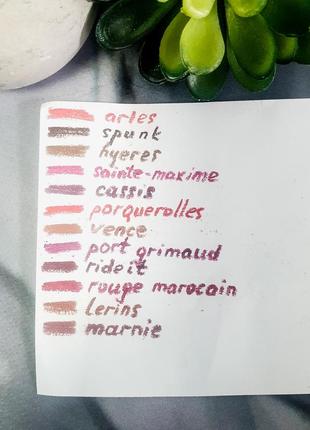 arles
spunk
hyeres
sainte-maxime
cassis
porquerolles
vence
port grimaud
ride it
rouge marocain
lerins
marnie